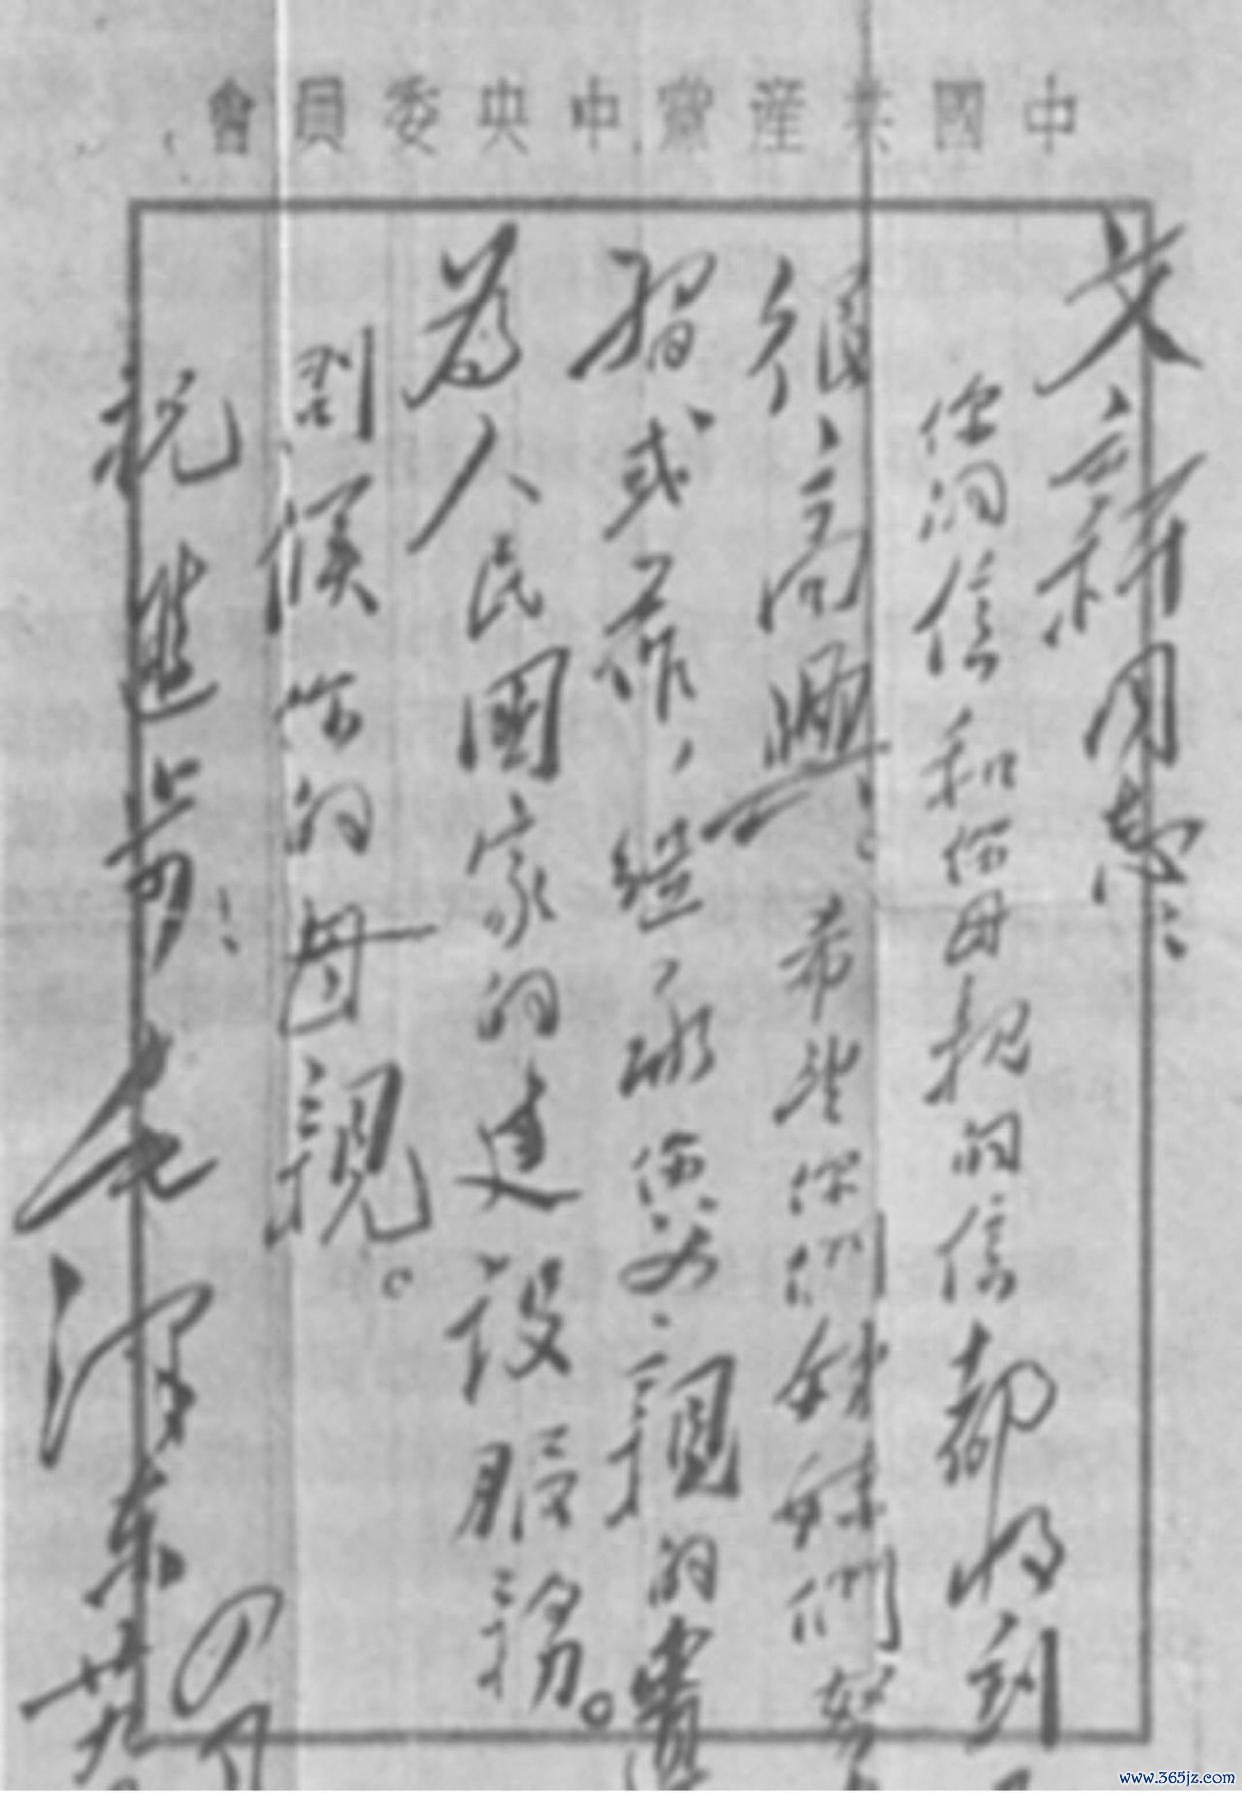 中國共產黨中央委員會
文新同志：
你的信和你母親的信都收到
很高興。希望你们姊妹們努
習或工作，继承你父親的遺
為人民國家的建設服務。
问候你的母親。
祝進步！
毛泽东
四月
廿九
www.365jz.com